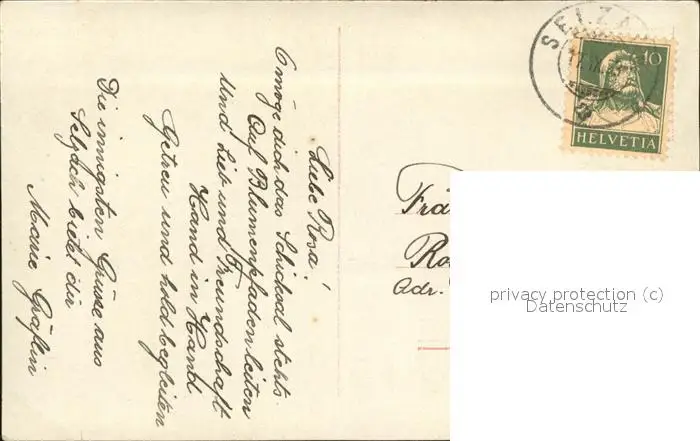 Liebe Rosa!
O möge dich das Schicksal stehts
Auf Blumenpfaden leiten
Und Lieb und Freundschaft
Hand in Hand
Getreu und hold begleiten
Die innigsten Grüsse aus
Selzach bietet dir
Marie Gräflin
SELZA
10
HELVETIA
Frä
Ro
Adr.
privacy protection (c)
Datenschutz